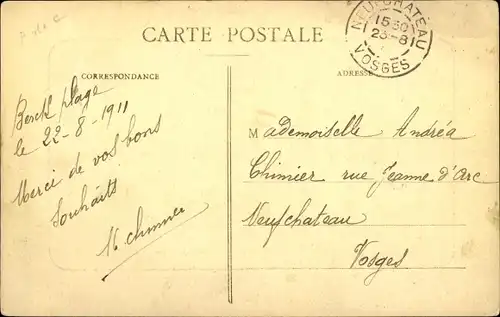 CARTE POSTALE
NEUFCHATEAU
15 30
23-8
VOSGES
CORRESPONDANCE
ADRESSE
Berck plage
le 22-8-1911
Merci de vos bons
souhaits
Mademoiselle Andréa
Chimier rue Jeanne d'Arc
Neufchateau
Vosges